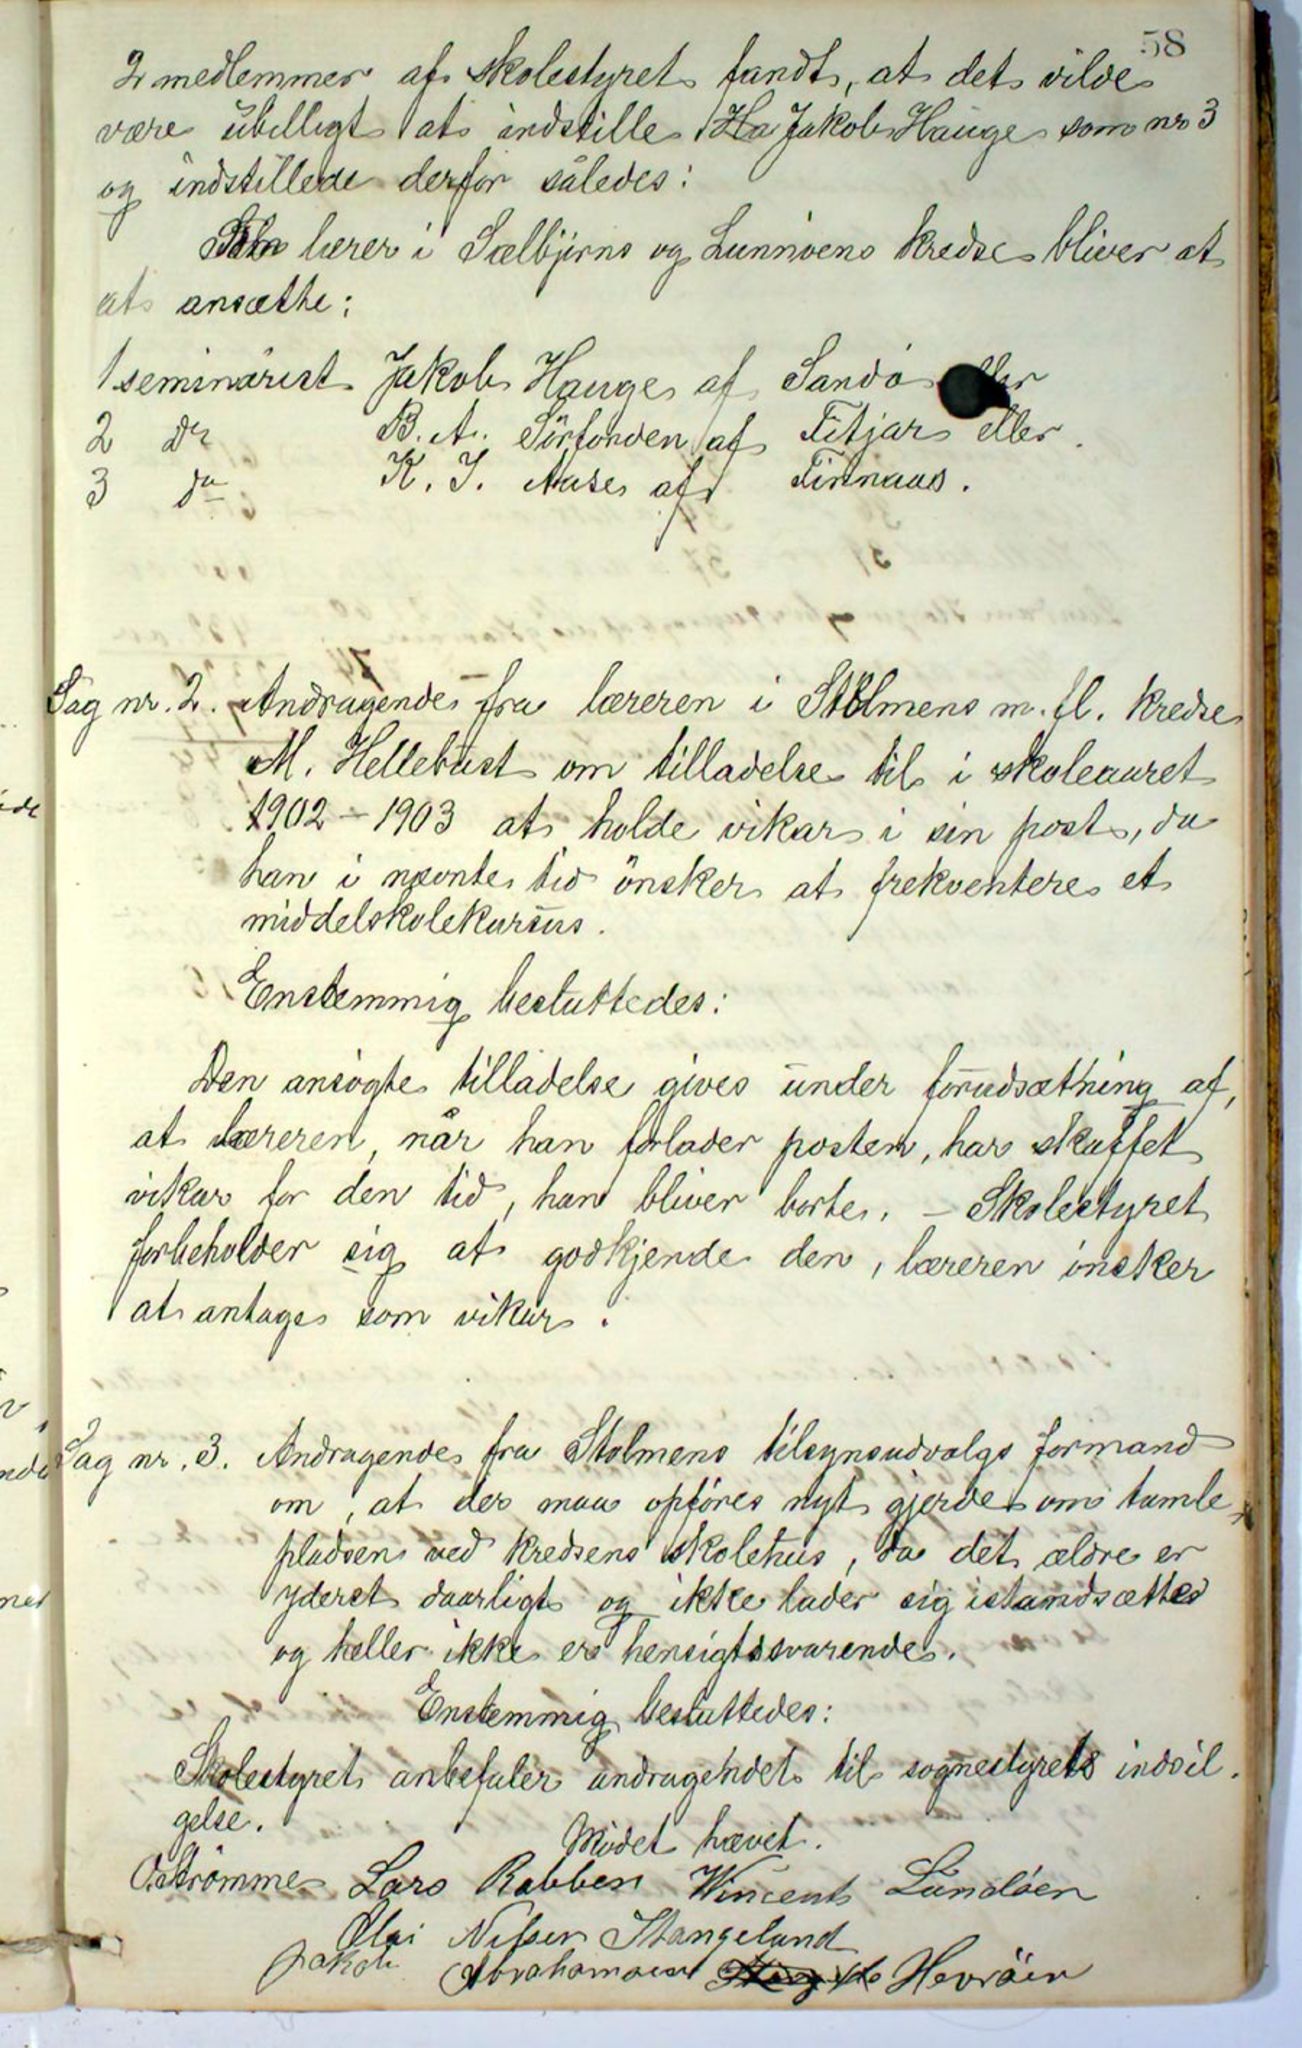 58
2 medlemmer af skolestyret fandt, at det vilde
være übilligt at indstille Ha Jakob Hauge som nr 3
og indstillede derfor således:
Som lærer i Sælbjörns og Lunnöens kredse bliver at
at ansætte:
1 seminarist Jakob Hauge af Sandö eller
2 do B. A. Sörfonden af Fitjar eller
3 do K. J. Aase af Finnaas.
Sag nr. 2. Andragende fra læreren i Stolmens m. fl. kredse
M. Hellebust om tilladelse til i skoleaaret
1902 - 1903 at holde vikar i sin post, da
han i nævnte tid önsker at frekventere et
middelskolekursus.
Enstemmig besluttedes:
Den ansögte tilladelse gives under forudsætning af,
at læreren, når han forlader posten, har skaffet
vikar for den tid, han bliver borte. - Skolestyret
forbeholder sig at godkjende den, læreren önsker
at antage som vikar.
Sag nr. 3. Andragende fra Stolmens tilsynsudvalgs formand
om, at der maa opföres nyt gjerde om tumle
pladsen ved kredsens skolehus, da det ældre er
yderst daarligt og ikke lader sig istandsættes
og heller ikke er hensigtssvarende.
Enstemmig besluttedes:
Skolestyret anbefaler andragendet til sognestyrets indvil.
gelse.
Mödet hævet.
O. Strömme Lars Rabben Vincents Lundöen
Olai Nilsen Stangeland
Jakob Abrahamsen Hevröen